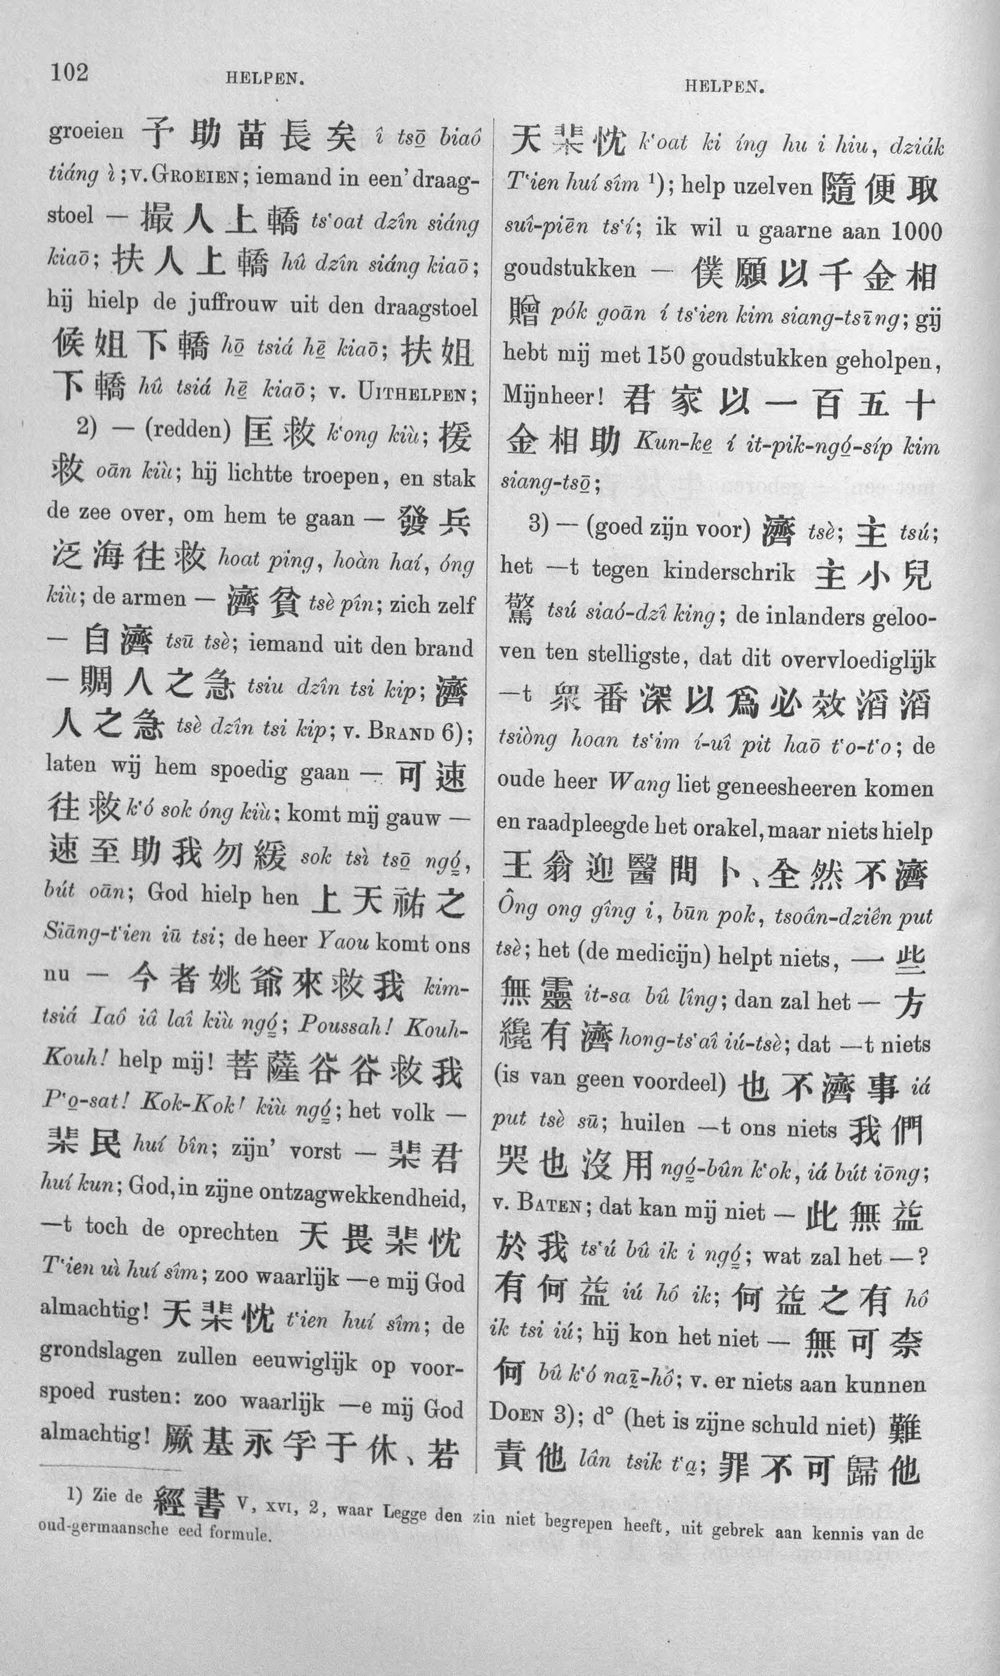 102
HELPEN.
HELPEN.
groeien 予助苗長矣 î tsō biaô
tiáng ì; v. GROEIEN; iemand in een' draag-
stoel — 撮人上轎 ts‘oat dzîn siáng
kiaō; 扶人上轎 hû dzîn siáng kiaō;
hij hielp de juffrouw uit den draagstoel
候姐下轎 hō tsiá hē kiaō; 扶姐
下轎 hû tsiá hē kiaō; v. UITHELPEN;
2) — (redden) 匡救 k‘ong kiù; 援
救 oān kiù; hij lichtte troepen, en stak
de zee over, om hem te gaan — 發兵
泛海往救 hoat ping, hoàn haí, óng
kiù; de armen — 濟貧 tsè pîn; zich zelf
— 自濟 tsū tsè; iemand uit den brand
— 賙人之急 tsiu dzîn tsi kip; 濟
人之急 tsè dzîn tsi kip; v. BRAND 6);
laten wij hem spoedig gaan — 可速
往救 k‘ó sok óng kiù; komt mij gauw —
速至助我勿緩 sok tsì tsō ngó,
bút oān; God hielp hen 上天祐之
Siāng-t‘ien iū tsi; de heer Yaou komt ons
nu — 今者姚爺來救我 kim-
tsiá Iaô iâ laî kiù ngó; Poussah! Kouh-
Kouh! help mij! 菩薩谷谷救我
P‘o-sat! Kok-Kok! kiù ngó; het volk —
棐民 huí bîn; zijn' vorst — 棐君
huí kun; God, in zijne ontzagwekkendheid,
—t toch de oprechten 天畏棐忱
T‘ien uì huí sîm; zoo waarlijk —e mij God
almachtig! 天棐忱 t‘ien huí sîm; de
grondslagen zullen eeuwiglijk op voor-
spoed rusten: zoo waarlijk —e mij God
almachtig! 厥基永孚于休、若
天棐忱 k‘oat ki íng hu i hiu, dziák
T‘ien huí sîm ¹); help uzelven 隨便取
suî-piēn ts‘í; ik wil u gaarne aan 1000
goudstukken — 僕願以千金相
贈 pók goān í ts‘ien kim siang-tsīng; gij
hebt mij met 150 goudstukken geholpen,
Mijnheer! 君家以一百五十
金相助 Kun-ke í it-pik-ngó-síp kim
siang-tsō;
3) — (goed zijn voor) 濟 tsè; 主 tsú;
het —t tegen kinderschrik 主小兒
驚 tsú siaó-dzî king; de inlanders geloo-
ven ten stelligste, dat dit overvloediglijk
—t 衆番深以爲必效滔滔
tsiòng hoan ts‘im í-uî pit haō t‘o-t‘o; de
oude heer Wang liet geneesheeren komen
en raadpleegde het orakel, maar niets hielp
王翁迎醫問卜、全然不濟
Ông ong gîng i, būn pok, tsoân-dziên put
tsè; het (de medicijn) helpt niets, 一些
無靈 it-sa bû lîng; dan zal het — 方
纔有濟 hong-ts‘aî iú-tsè; dat —t niets
(is van geen voordeel) 也不濟事 iá
put tsè sū; huilen —t ons niets 我們
哭也沒用 ngó-bûn k‘ok, iá bút iōng;
v. BATEN; dat kan mij niet — 此無益
於我 ts‘ú bû ik i ngó; wat zal het —?
有何益 iú hô ik; 何益之有 hô
ik tsi iú; hij kon het niet — 無可奈
何 bû k‘ó naī-hô; v. er niets aan kunnen
DOEN 3); d° (het is zijne schuld niet) 難
責他 lân tsik t‘a; 罪不可歸他
1) Zie de 經書 V, XVI, 2, waar Legge den zin niet begrepen heeft, uit gebrek aan kennis van de
oud-germaansche eed formule.